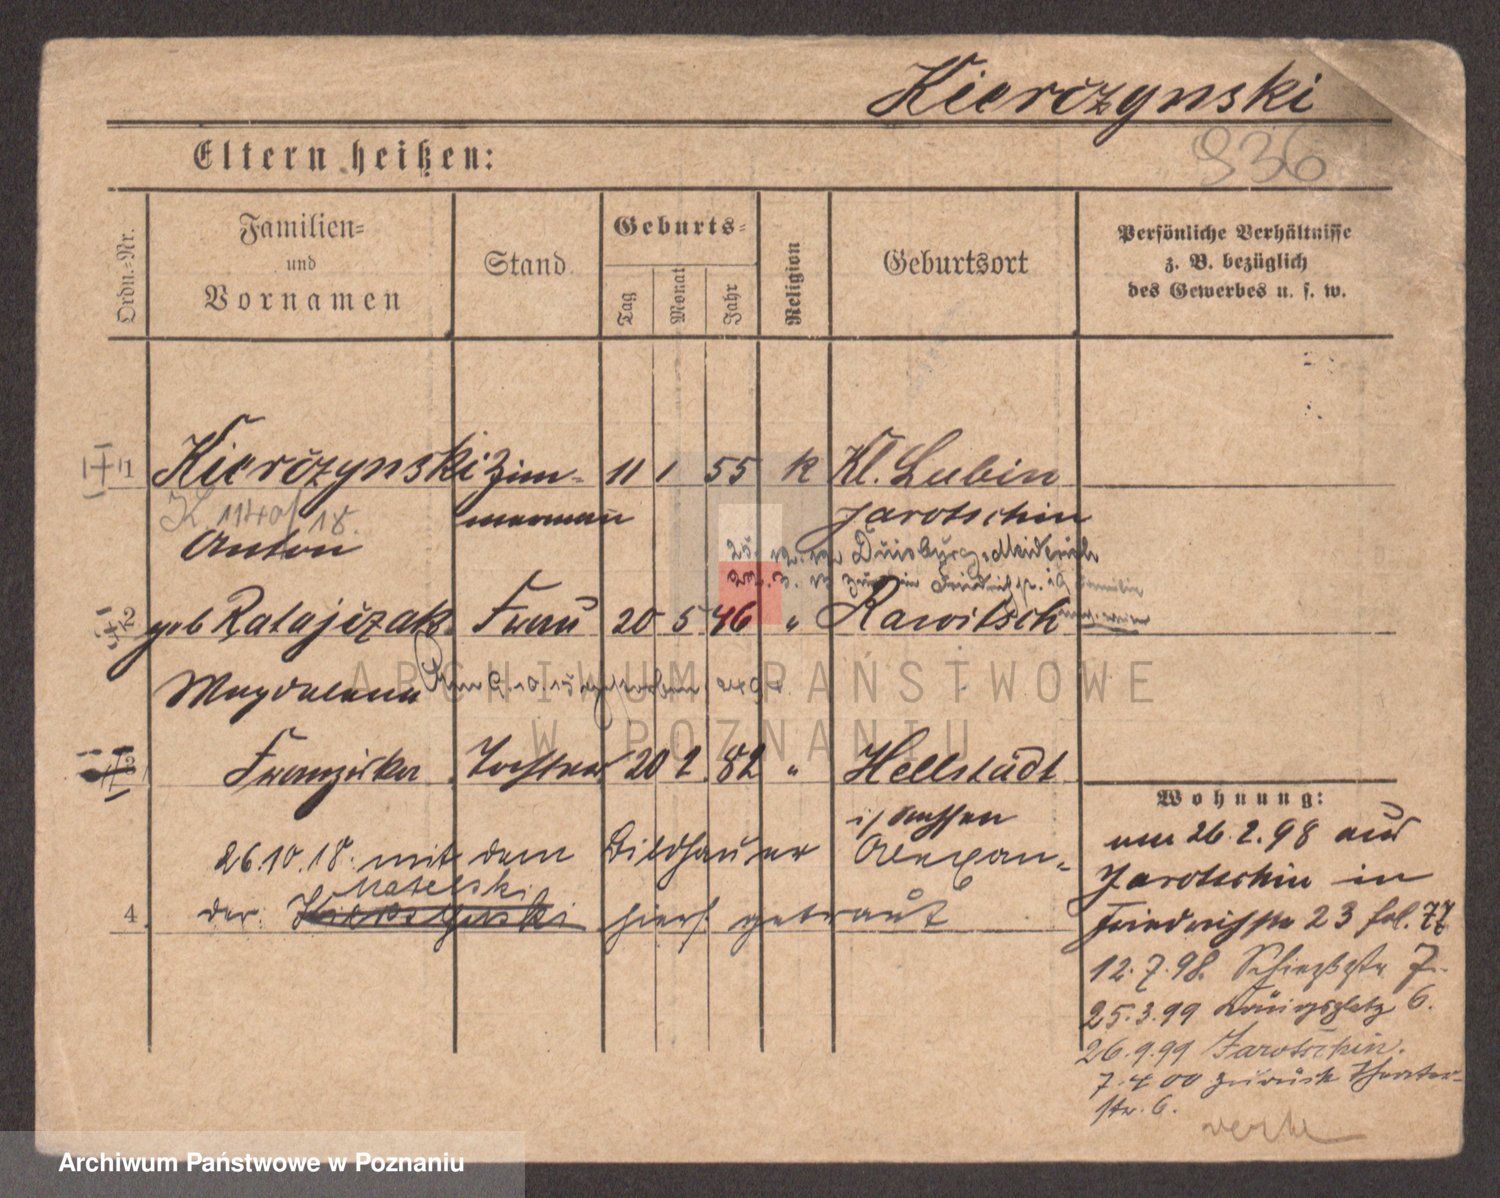 Kierczynski
936
Eltern heißen:
Ordn.-Nr.
Familien-
und
Vornamen
Stand
Geburts-
Tag
Monat
Jahr
Religion
Geburtsort
Persönliche Verhältnisse
z. B. bezüglich
des Gewerbes u. s. w.
1 Kierczynski Zim- 11 1 55 K Kl. Lubin
mermann Jarotschin
K. 1140/18.
Anton
Duisburg-Meiderich
2 geb Ratajczak Frau 20 5 46 " Rawitsch
Magdalena
3 Franziska Tochter 20 2 82 " Hellstädt
i/ Sachsen
26.10.18. mit dem Bildhauer Alexan-
4 der hier getraut
Wohnung:
am 26.2.98 aus
Jarotschin in
Friedrichstr 23 fol. 77
12.7.98. 7.
25.3.99 Königsplatz 6.
26.9.99 Jarotschin.
7.4.00 zurück Theater-
str. 6.
ARCHIWUM PAŃSTWOWE
W POZNANIU
Archiwum Państwowe w Poznaniu